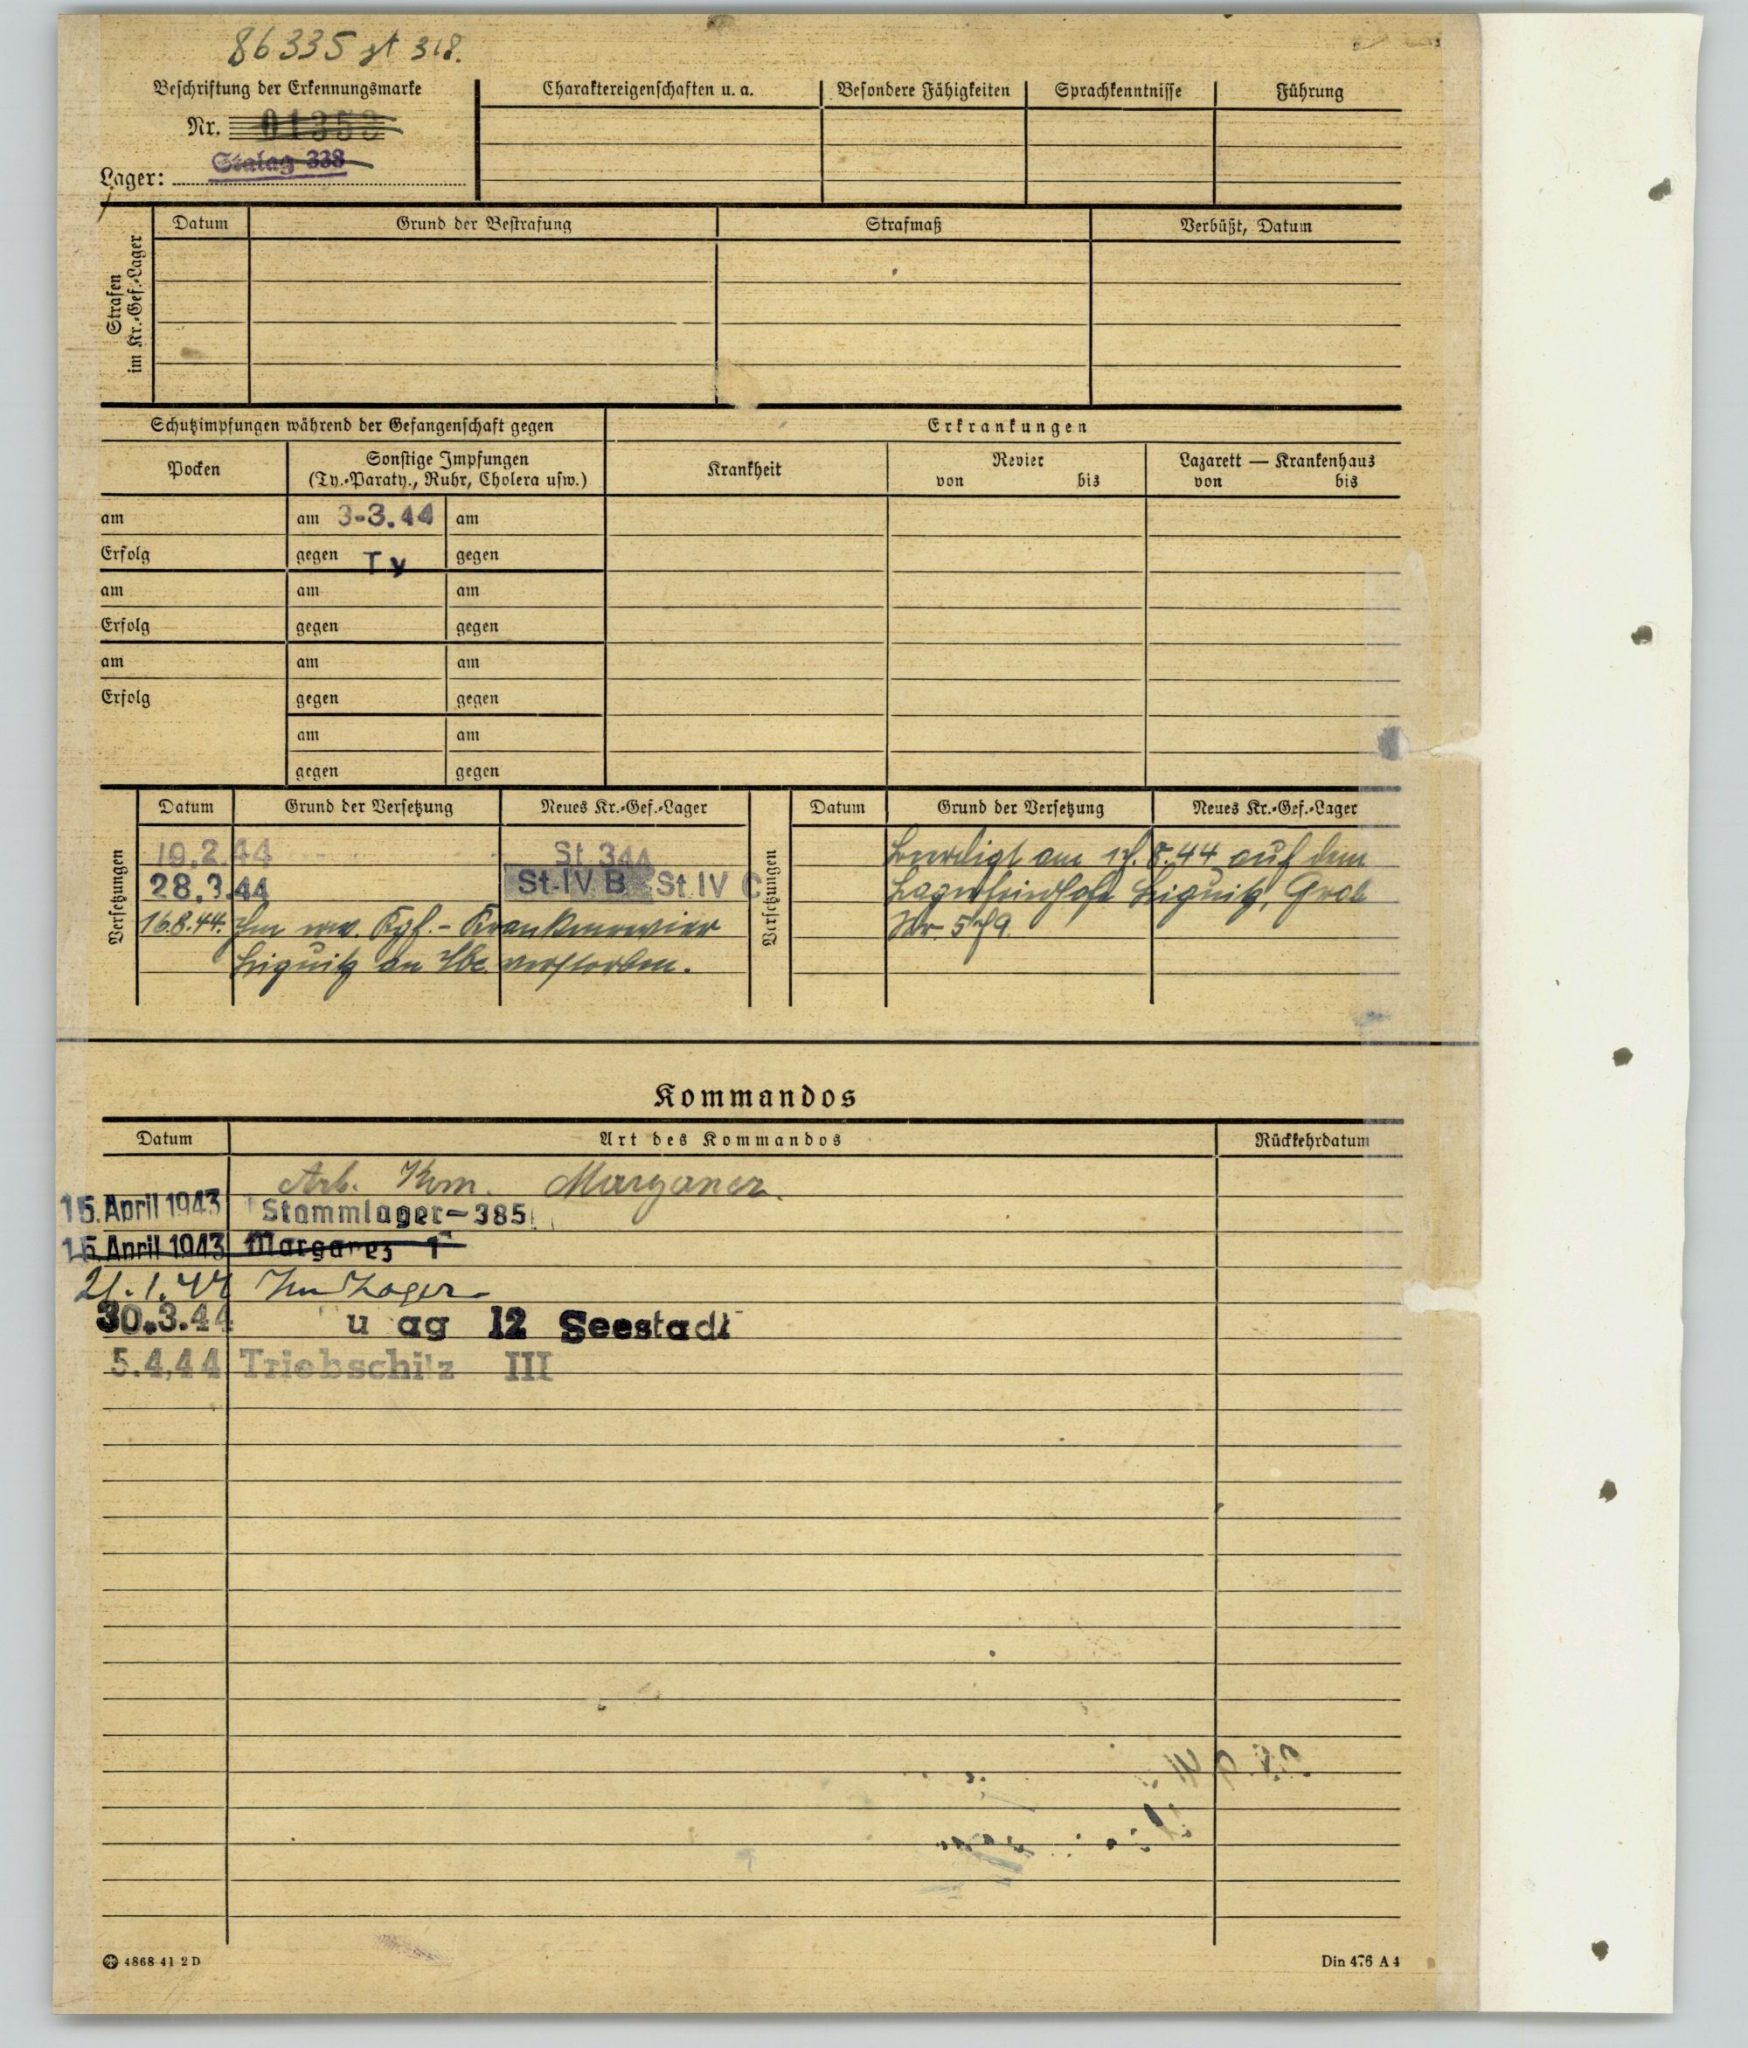 86335 st 318.
Beschriftung der Erkennungsmarke
Nr. 01353
Stalag 338
Lager:
Charaktereigenschaften u. a.
Besondere Fähigkeiten
Sprachkenntnisse
Führung
Strafen
im Kr.-Gef.-Lager
Datum
Grund der Bestrafung
Strafmaß
Verbüßt, Datum
Schutzimpfungen während der Gefangenschaft gegen
Erkrankungen
Pocken
Sonstige Impfungen
(Ty.-Paraty., Ruhr, Cholera usw.)
Krankheit
Revier
von bis
Lazarett — Krankenhaus
von bis
am am 3-3.44 am
Erfolg gegen Ty gegen
am am am
Erfolg gegen gegen
am am am
Erfolg gegen gegen
am am
gegen gegen
Versetzungen
Datum Grund der Versetzung Neues Kr.-Gef.-Lager
19.2.44 St. 344
28.3.44 St. IV B St. IV C
16.8.44. Im Kgf.-Krankenrevier
an verstorben.
Versetzungen
Datum Grund der Versetzung Neues Kr.-Gef.-Lager
Beerdigt am 8.44 auf dem
Grab
Nr.
Kommandos
Datum Art des Kommandos Rückkehrdatum
Arb. Kom. Marganez.
15. April 1943 Stammlager-385
15. April 1943 Marganez 1
21.1.44 Im Lager
30.3.44 u ag 12 Seestadt
5.4.44 Triebschitz III
4868 41 2 D
Din 476 A 4